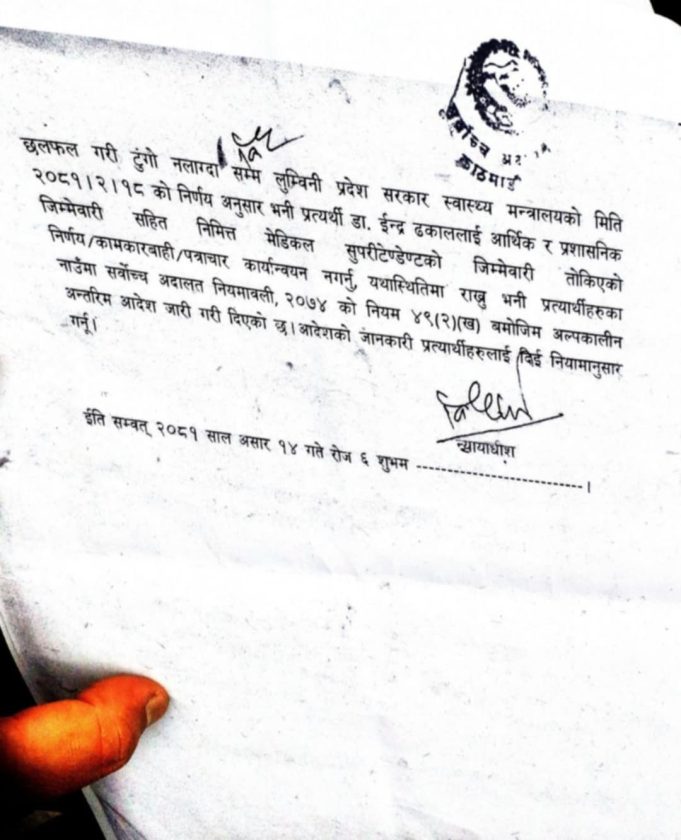 सर्वोच्च अदालत
काठमाडौं
छलफल गरी टुंगो नलाग्दा सम्म लुम्विनी प्रदेश सरकार स्वास्थ्य मन्त्रालयको मिति
२०८१।२।१८ को निर्णय अनुसार भनी प्रत्यर्थी डा. ईन्द्र ढकाललाई आर्थिक र प्रशासनिक
जिम्मेवारी सहित निमित्त मेडिकल सुपरीटेण्डेण्टको जिम्मेवारी तोकिएको
निर्णय/कामकारबाही/पत्राचार कार्यान्वयन नगर्नु, यथास्थितिमा राख्नु भनी प्रत्यार्थीहरुका
नाउँमा सर्वोच्च अदालत नियमावली, २०७४ को नियम ४९(२)(ख) बमोजिम अल्पकालीन
अन्तरिम आदेश जारी गरी दिएको छ।आदेशको जानकारी प्रत्यार्थीहरुलाई दिई नियामानुसार
गर्नू।
न्यायाधीश
ईति सम्वत् २०८१ साल असार १४ गते रोज ६ शुभम ------------------------।